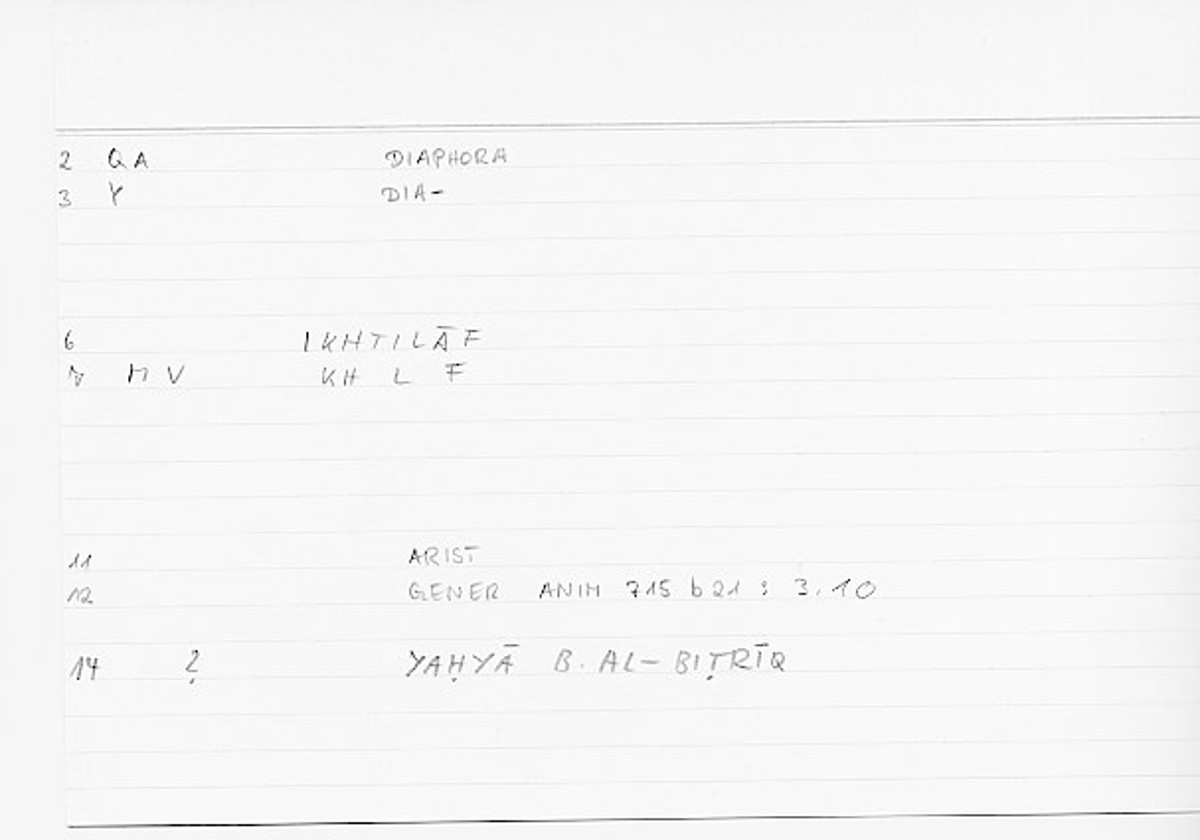 2 QA DIAPHORA
3 Y DIA-
6 IKHTILĀF
7 M V KH L F
11 ARIST
12 GENER ANIM 715 b 21 : 3.10
14 ? YAḤYĀ B. AL-BIṬRĪQ